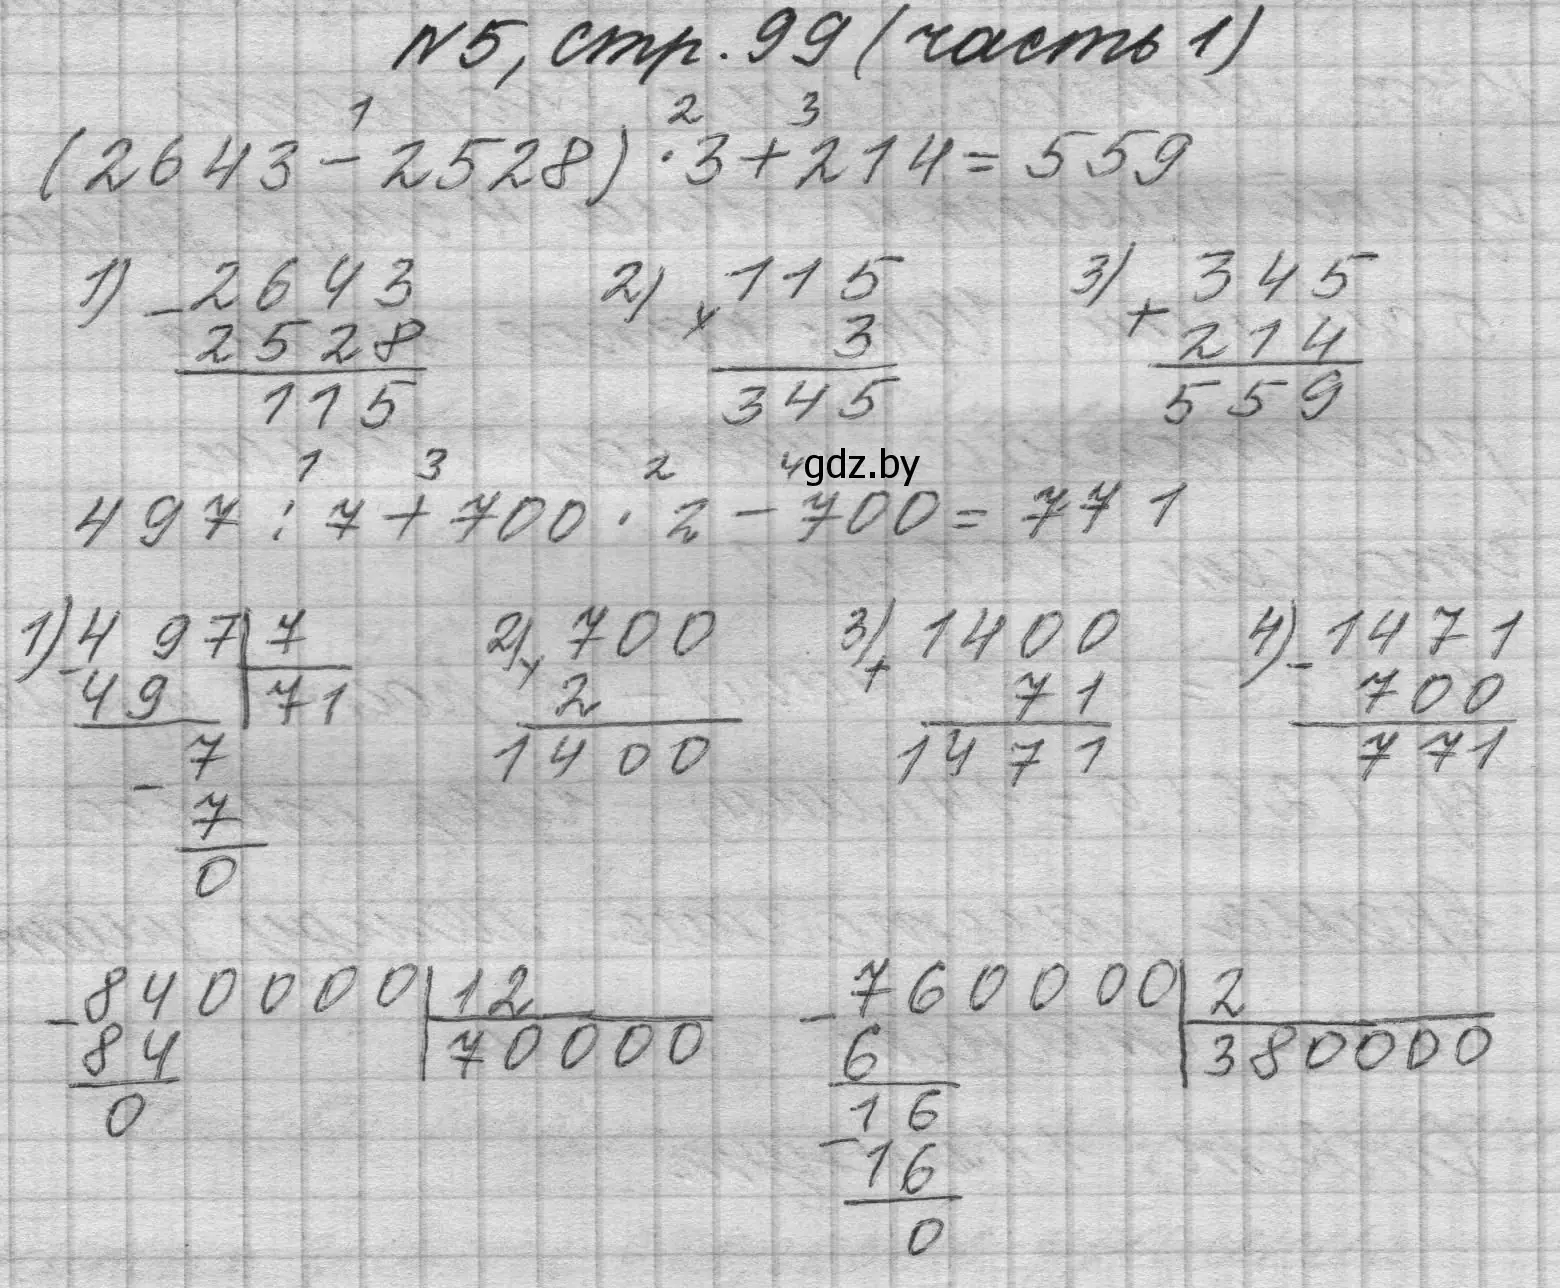 №5, стр. 99 (часть 1)
1 2 3
(2643 - 2528) · 3 + 214 = 559
1) - 2643 2) x 115 3) + 345
2528 3 214
115 345 559
1 3 2 4 gdz.by
497 : 7 + 700 · 2 - 700 = 771
1) - 497 | 7 2) x 700 3) + 1400 4) - 1471
49 | 71 2 71 700
- 7 1400 1471 771
7
0
- 840000 | 12 - 760000 | 2
84 | 70000 6 | 380000
0 - 16
16
0